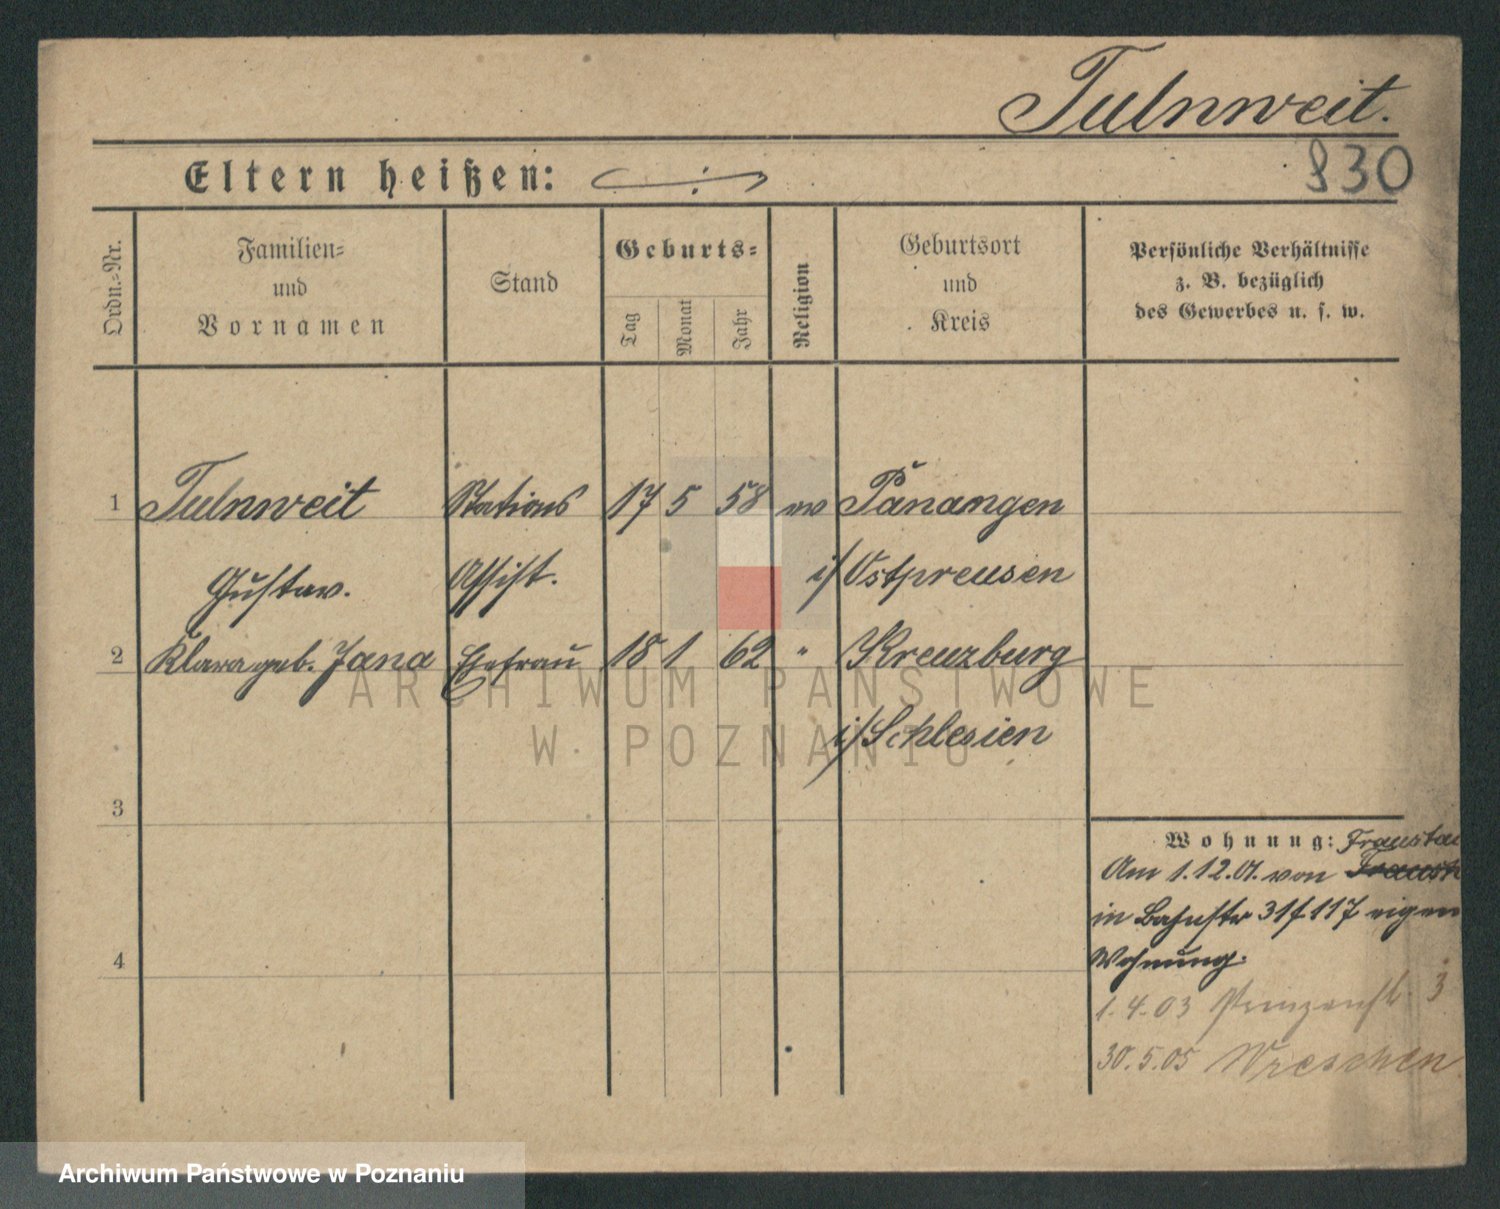 Tulnweit.
830
Eltern heißen:
Ordn.-Nr.
Familien-
und
Vornamen
Stand
Geburts-
Tag
Monat
Jahr
Religion
Geburtsort
und
Kreis
Persönliche Verhältnisse
z. B. bezüglich
des Gewerbes u. s. w.
1 Tulnweit Stations 17 5 58 ev Panangen
Gustav. Assist. i/ Ostpreusen
2 Klara geb. Jana Ehefrau 18 1 62 " Kreuzburg
i/ Schlesien
3
4
Wohnung: Fraustad
Am 1.12.01. von
in Bahnstr 31 f 117 eigen
Wohnung.
1.4.03 Prinzenstr. 3
30.5.05 Wreschen
ARCHIWUM PAŃSTWOWE
W POZNANIU
Archiwum Państwowe w Poznaniu